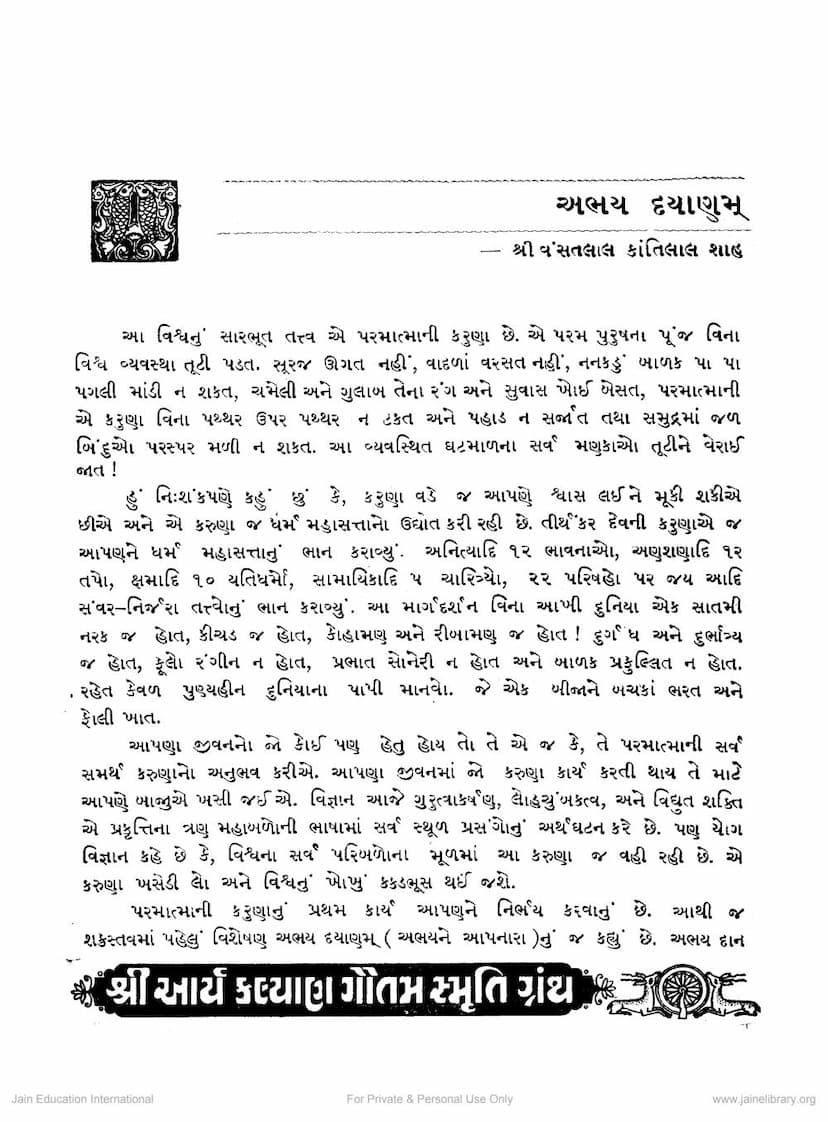 અભય દયાણમ્
— શ્રી વંસતલાલ કાંતિલાલ શાહ
આ વિશ્વનું સારભૂત તત્ત્વ એ પરમાત્માની કરુણા છે. એ પરમ પુરુષના પૂંજ વિના
વિશ્વ વ્યવસ્થા તૂટી પડત. સૂરજ ઊગત નહીં, વાદળાં વરસત નહીં, નનકડું બાળક પા પા
પગલી માંડી ન શકત, ચમેલી અને ગુલાબ તેના રંગ અને સુવાસ ખોઈ બેસત, પરમાત્માની
એ કરુણા વિના પથ્થર ઉપર પથ્થર ન ટકત અને પહાડ ન સર્જાત તથા સમુદ્રમાં જળ
બિંદુઓ પરસ્પર મળી ન શકત. આ વ્યવસ્થિત ઘટમાળના સર્વ મણકાઓ તૂટીને વેરાઈ
જાત !
હું નિઃશંકપણે કહું છું કે, કરુણા વડે જ આપણે શ્વાસ લઈને મૂકી શકીએ
છીએ અને એ કરુણા જ ધર્મ મહાસત્તાનો ઉદ્યોત કરી રહી છે. તીર્થંકર દેવની કરુણાએ જ
આપણને ધર્મ મહાસત્તાનું ભાન કરાવ્યું. અનિત્યાદિ ૧૨ ભાવનાઓ, અણુશણાદિ ૧૨
તપો, ક્ષમાદિ ૧૦ યતિધર્મો, સામાયિકાદિ ૫ ચારિત્ર્યો, ૨૨ પરિષહો પર જય આદિ
સંવર–નિર્જરા તત્ત્વોનું ભાન કરાવ્યું. આ માર્ગદર્શન વિના આખી દુનિયા એક સાતમી
નરક જ હોત, કીચડ જ હોત, કોહામણ અને રીબામણ જ હોત ! દુર્ગંધ અને દુર્ભાગ્ય
જ હોત, ફૂલો રંગીન ન હોત, પ્રભાત સોનેરી ન હોત અને બાળક પ્રફુલ્લિત ન હોત.
રહેત કેવળ પુણ્યહીન દુનિયાના પાપી માનવો. જે એક બીજાને બચકાં ભરત અને
ફોલી ખાત.
આપણા જીવનનો જો કોઈ પણ હેતુ હોય તો તે એ જ કે, તે પરમાત્માની સર્વ
સમર્થ કરુણાનો અનુભવ કરીએ. આપણા જીવનમાં જો કરુણા કાર્ય કરતી થાય તે માટે
આપણે બાજીએ ખસી જઈએ. વિજ્ઞાન આજે ગુરુત્વાકર્ષણ, લોહચુંબકત્વ, અને વિદ્યુત શક્તિ
એ પ્રકૃત્તિના ત્રણ મહાબળોની ભાષામાં સર્વ સ્થૂળ પ્રસંગોનું અર્થઘટન કરે છે. પણ યોગ
વિજ્ઞાન કહે છે કે, વિશ્વના સર્વ પરિબળોના મૂળમાં આ કરુણા જ વહી રહી છે. એ
કરુણા ખસેડી લો અને વિશ્વનું ખોખું કકડભૂસ થઈ જશે.
પરમાત્માની કરુણાનું પ્રથમ કાર્ય આપણને નિર્ભય કરવાનું છે. આથી જ
શક્રસ્તવમાં પહેલું વિશેષણ અભય દયાણમ્ ( અભયને આપનારા )નું જ કહ્યું છે. અભય દાન
શ્રી આર્ય કલ્યાણ ગૌતમ સ્મૃતિ ગ્રંથ
Jain Education International
For Private & Personal Use Only
www.jainelibrary.org